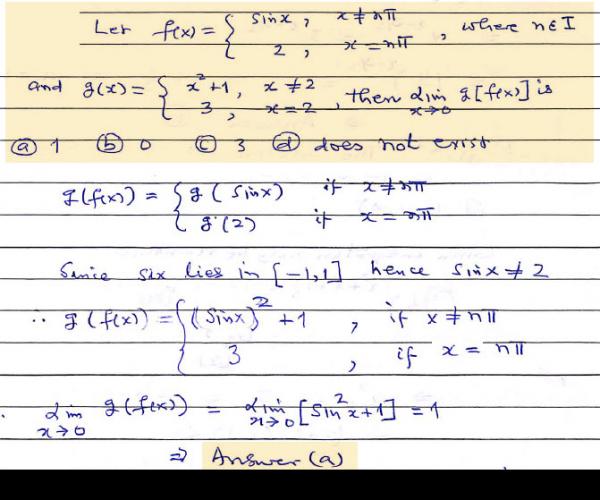 Let f(x) = { sinx, x ≠ nπ , where n ∈ I
2, x = nπ
and g(x) = { x²+1, x ≠ 2 , then lim x→0 g[f(x)] is
3, x = 2
(a) 1 (b) 0 (c) 3 (d) does not exist
g(f(x)) = { g(sinx) if x ≠ nπ
g(2) if x = nπ
Since six lies in [-1,1] hence sinx ≠ 2
∴ g(f(x)) = { (sinx)² + 1 , if x ≠ nπ
3 , if x = nπ
lim x→0 g(f(x)) = lim x→0 [sin²x+1] = 1
⇒ Answer (a)